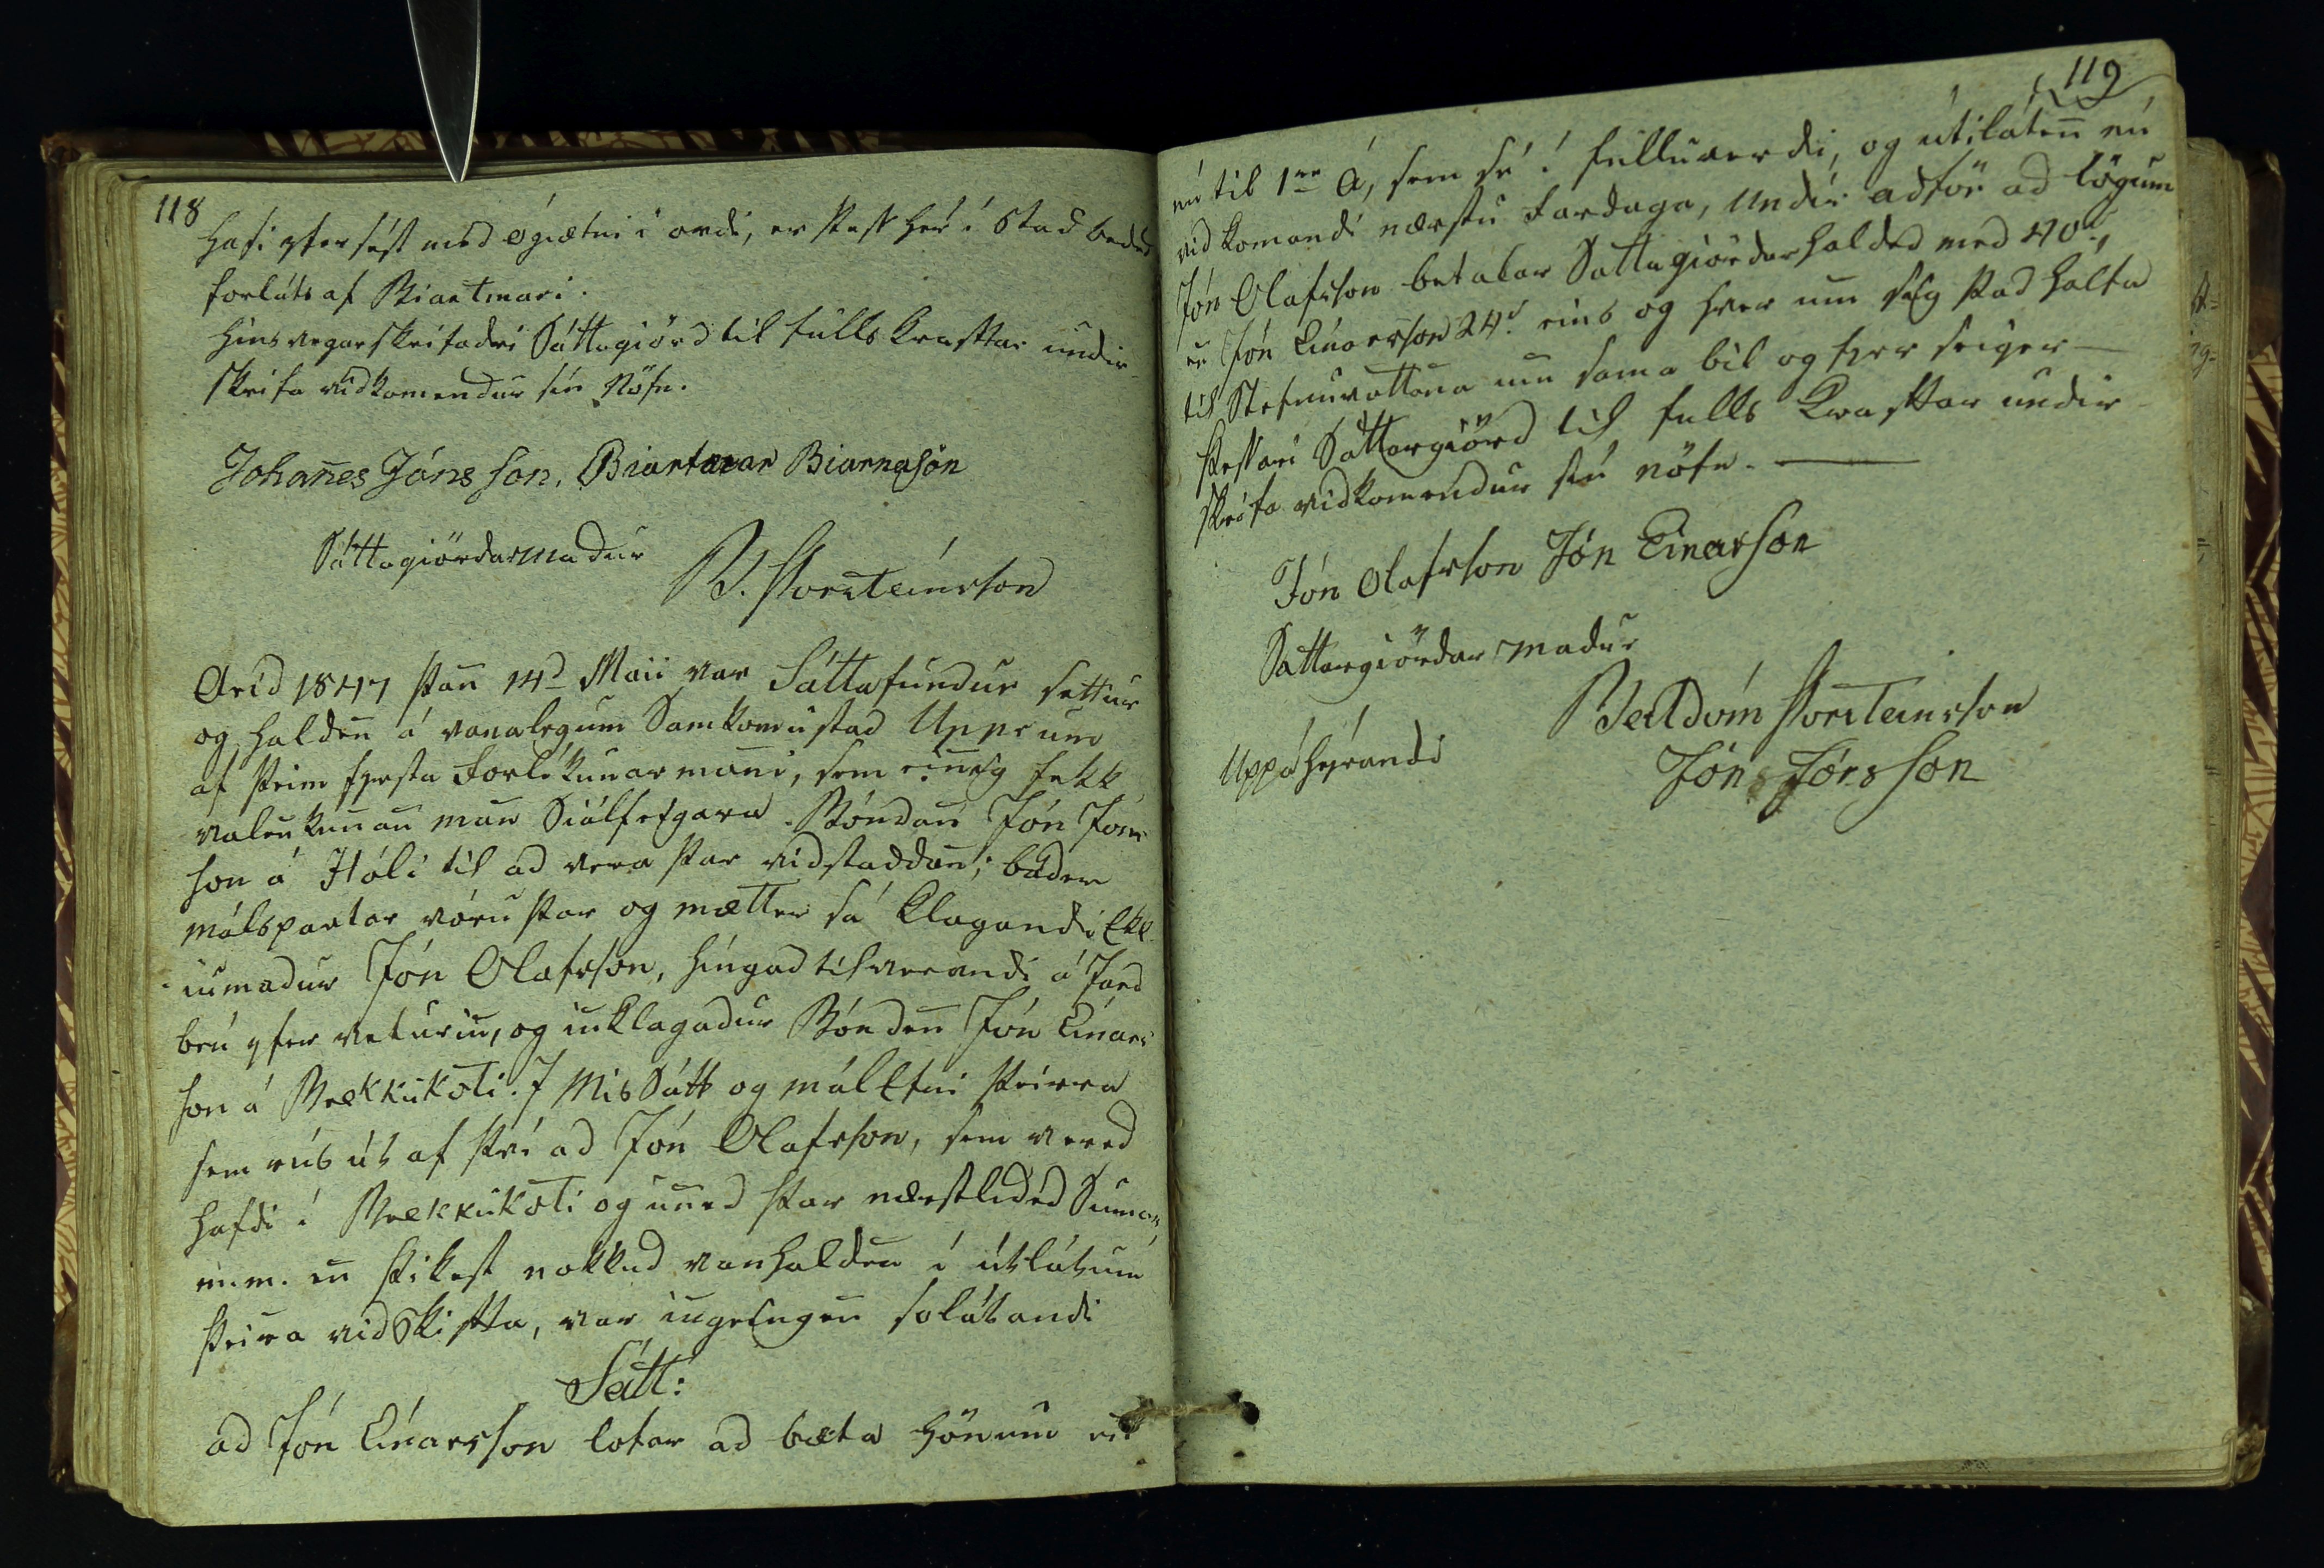 118
hafi yfersést med ógiætni i ordi, er þess hér i stad beded
forláts af Biartmari.
hinsvegar skrifadri Sáttagiörd til fulls kraftar undir-
skrifa vidkomendur sín Nöfn.
Johan̄es Jónsson, Biartmar Biarnasön
Sáttagiördarmadur
B. Þorsteinsson
Arid 1847 þan̄ 14d Maii var Sáttafundur settur
og haldin̄ á vanalegum Samkomustad
af þeim fyrsta Forlikunarman̄i, sem ein̄ig fekk
valenkun̄an man̄ Siálfseigara Bóndan̄ Jón Jóns
son á Hóli til ad vera þar vidstaddan̄; báder
málspartar vóru þar og mætter sá klagandi Ekk-
iumadur Jón Olafsson, hingad tilverandi á Jard
brú yfer veturin, og inklagadur Bóndin̄ Jón Einars
son á Brekkukoti. I Missátt og málefni þeirra
sem rís út af því ad Jón Olafsson, sem vered
hafdi i Brekkukoti og un̄ed þar næstleded Sumar
m.m. en þikest nokkud vanhalden̄ i útlátum
þeirra vidskipta, var ingeingen̄ solátandi
Sátt:
ad Jón Einarsson lofar ad bæta hönum
119
til 1nn Á, sem sé i fulluverdi, og útilátin̄
vidkomandi næstu Fardaga, Undir adför ad lögum
Jón Olafsson betalar Sáttagiördarhalded med 40s,
en Jón Einarsson 24s eins og hver um sig þad halfa
til Stefnuvottana um sama bil og fyrr seiger —
Þessari Sáttargiörd til fulls kraftar undir-
skrifa vidkomendur sín nöfn. —
Jón Olafsson Jón Einarson
Sáttargiördar madur
Uppáhýrandi
Þorsteinsson
Jón Jónsson